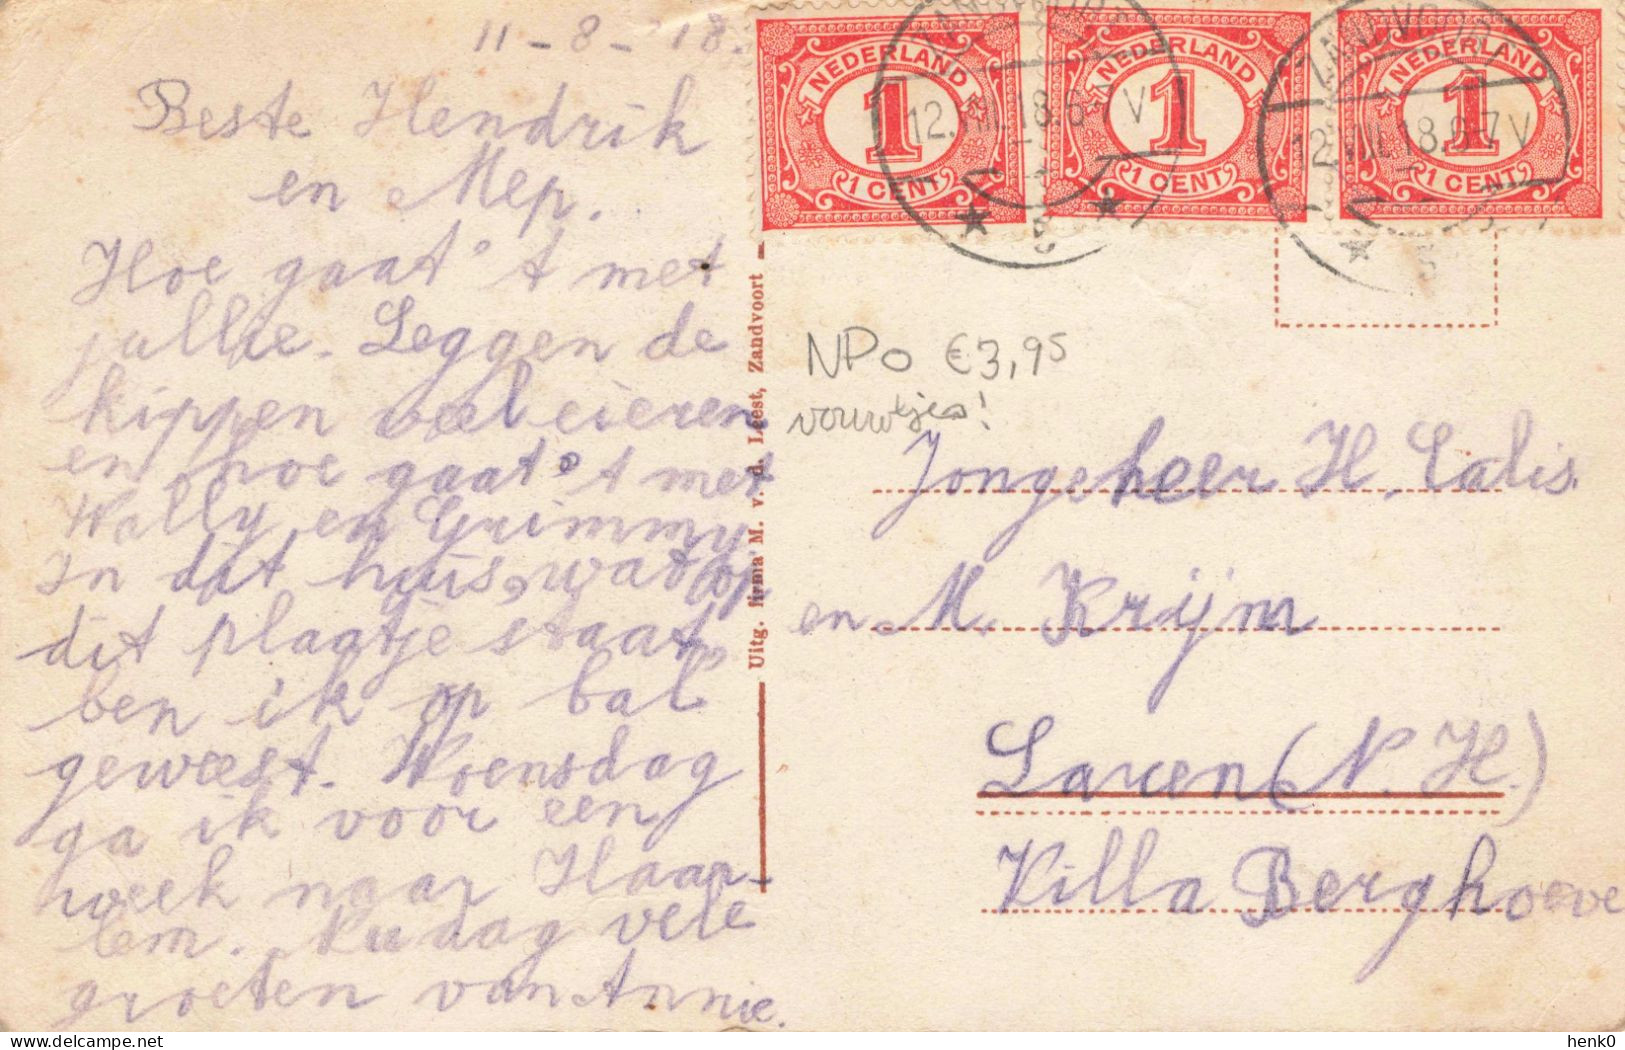 11-8-'18.
Beste Hendrik
en Mep.
Hoe gaat 't met
jullie. Leggen de
kippen veel eieren
en hoe gaat 't met
Wolly en Grimmy
In dit huis, wat op
dit plaatje staat,
ben ik op bal
geweest. Woensdag
ga ik voor een
week naar Haar-
lem. Nu dag vele
groeten van Annie.
Uitg. firma M. v. d. Leest, Zandvoort
NEDERLAND
1
1 CENT
NEDERLAND
1
1 CENT
NEDERLAND
1
1 CENT
ZANDVOORT
12.VIII.18.6-7V
ZANDVOORT
12.VIII.18.6-7V
NPO €3,95
vouwtjes!
Jongeheer H. Calis.
en M. Krijm
Laren (N. H.)
Villa Berghoeve
henk0